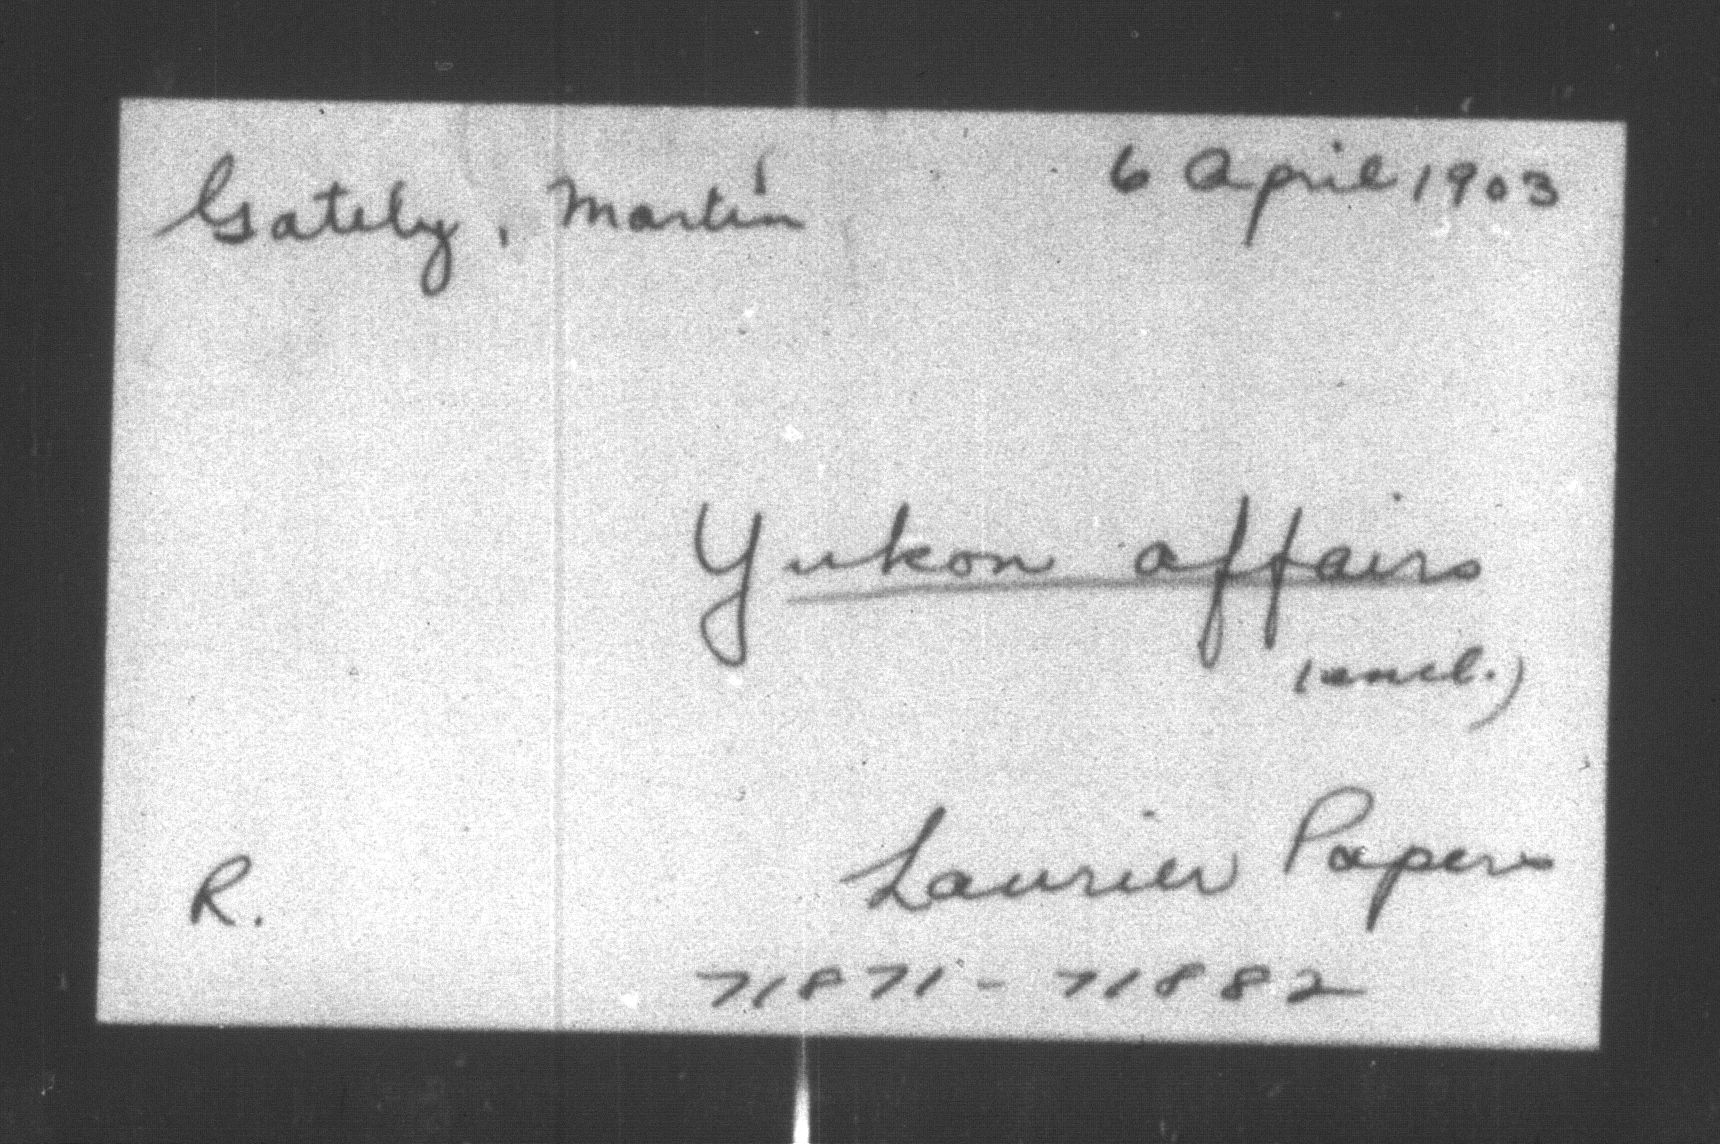 Gately, Martin 6 April 1903
Yukon affairs
(encl.)
Laurier Papers
R.
71871-71882